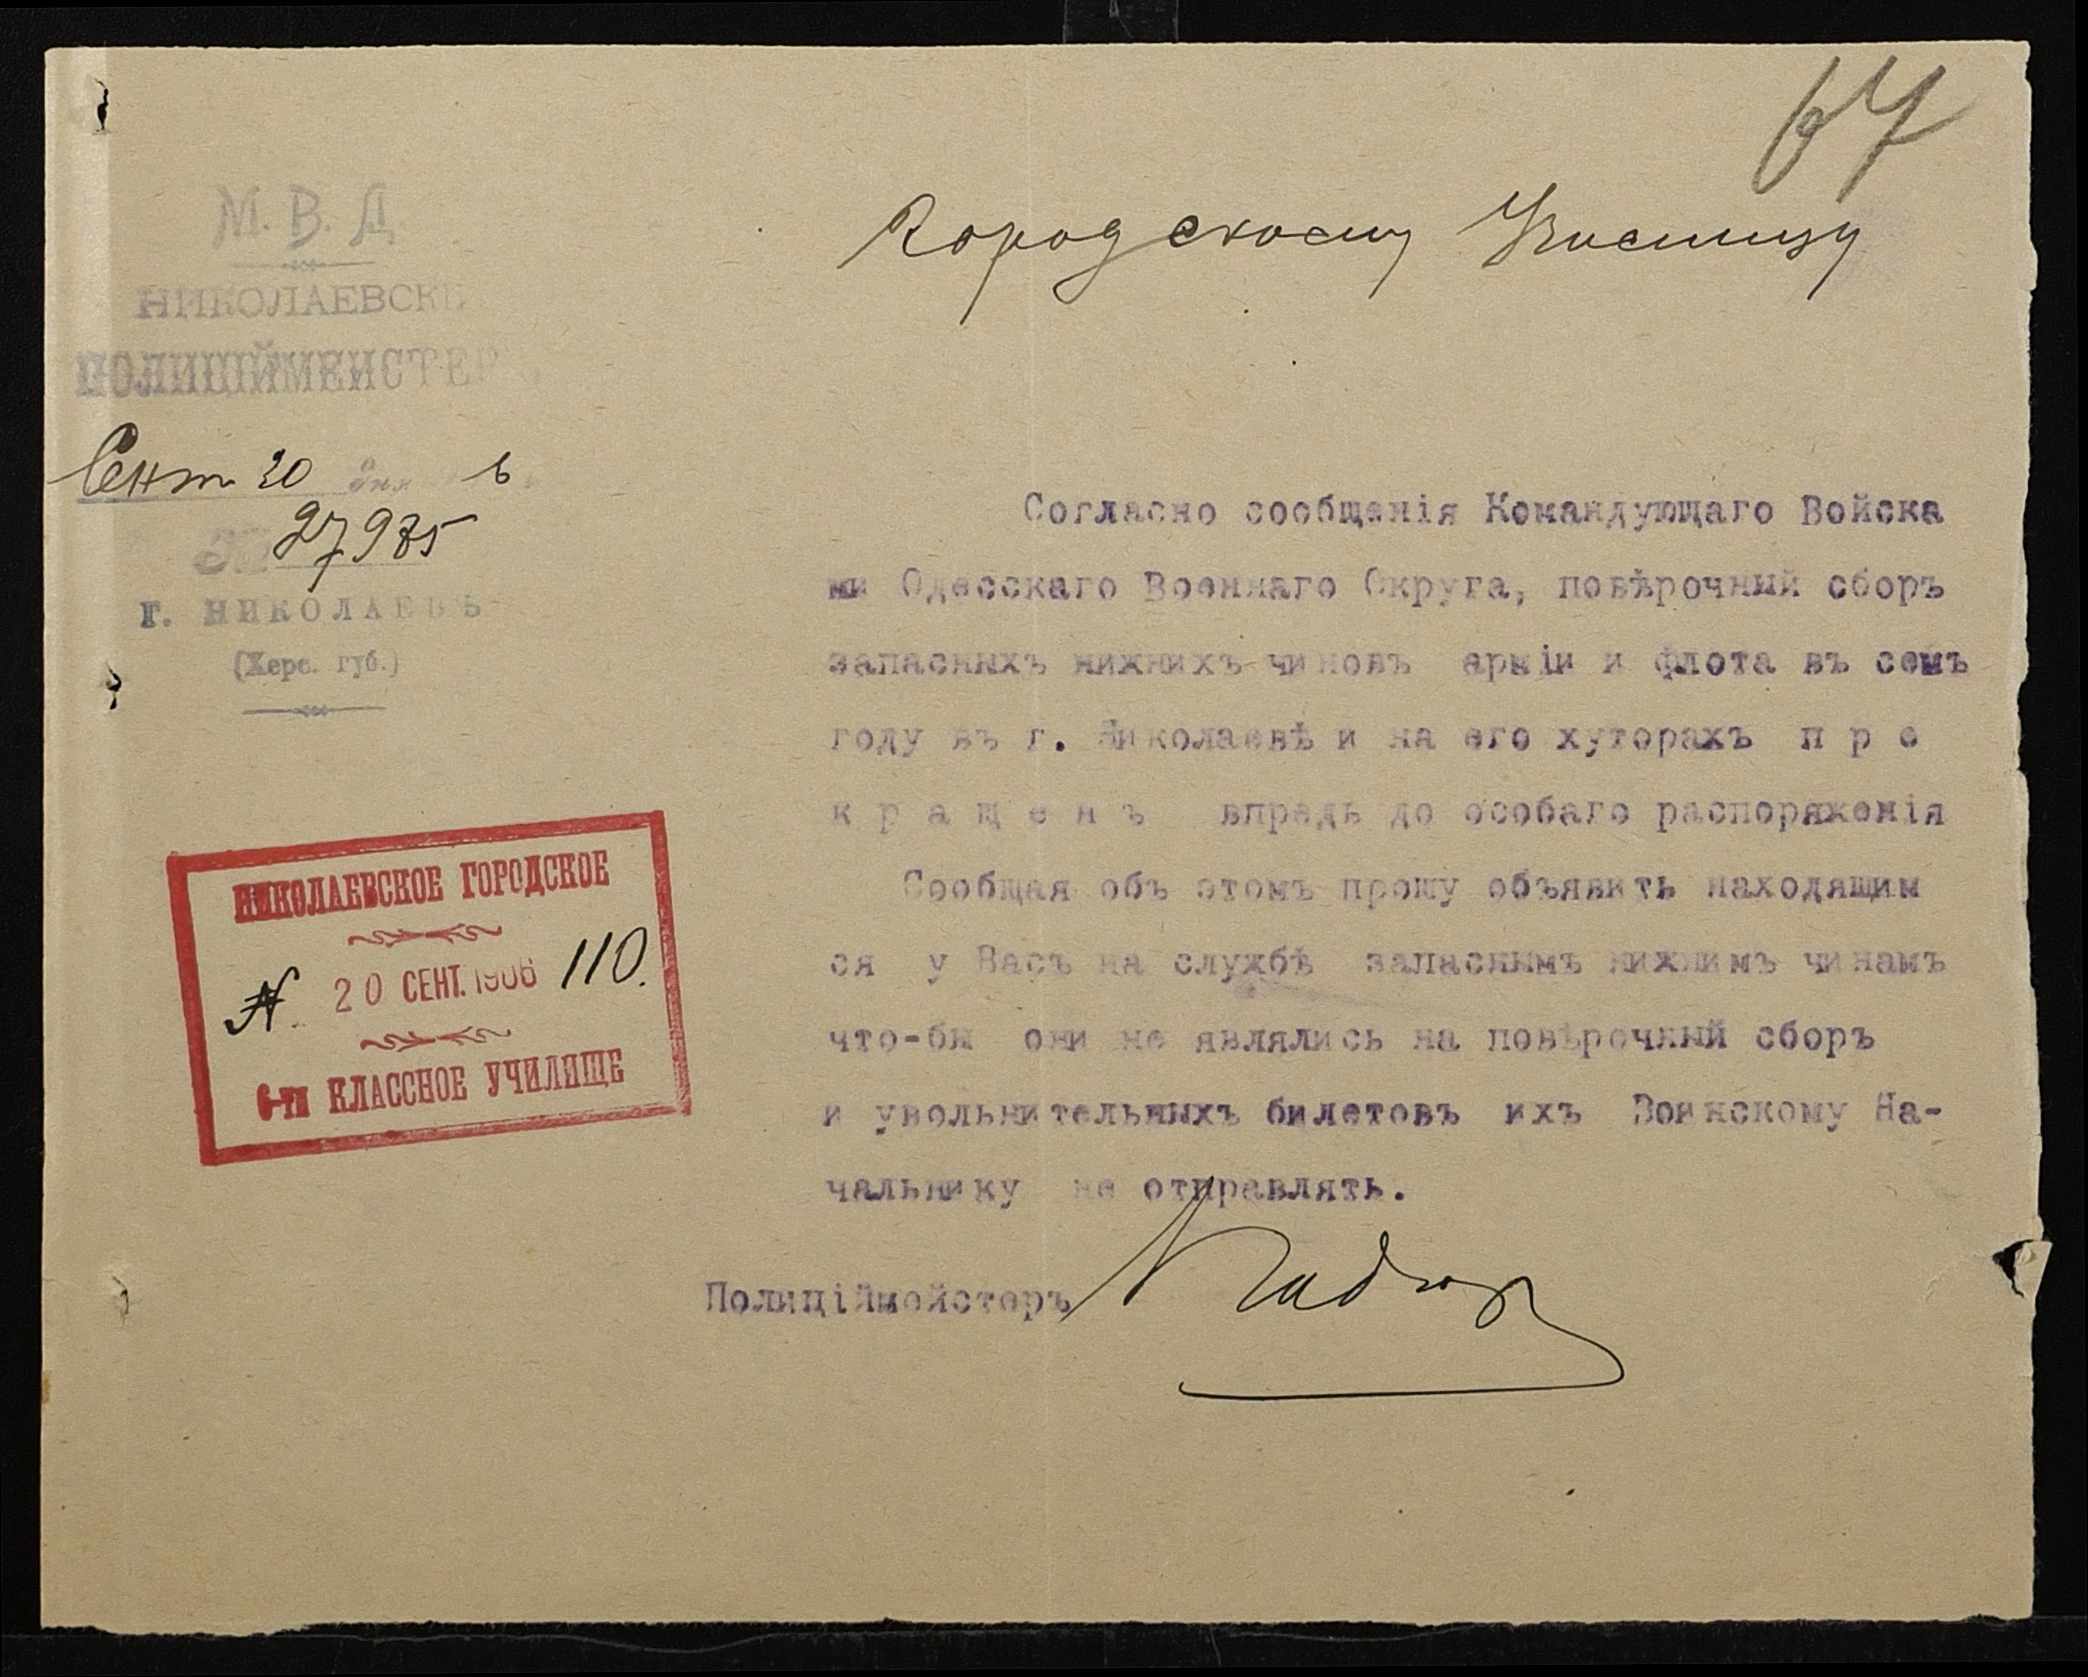 67
М. В. Д
Городскому Училищу
НИКОЛАЕВСКІ
ПОЛИЦІЙМЕЙСТЕР
Сент 20 дня 6
№ 27985
Г. НИКОЛАЕВЪ
(Херс. губ.)
Согласно сообщенія Командующаго Войска
ми Одесскаго Военнаго Округа, повѣрочный сборъ
запасныхъ нижнихъ чиновъ арміи и флота въ семъ
году въ г. Николаевѣ и на его хуторахъ п р е
к р а щ е н ъ впредь до особаго распоряженія
Сообщая объ этомъ прошу объявить находящим
ся у Васъ на службѣ запаснымъ нижнимъ чинамъ
что-бы они не являлись на повѣрочный сборъ
и увольнительныхъ билетовъ ихъ Воинскому На-
чальнику не отправлять.
Полиціймейстеръ
НИКОЛАЕВСКОЕ ГОРОДСКОЕ
№ 20 СЕНТ. 1906 110.
6-ти КЛАССНОЕ УЧИЛИЩЕ